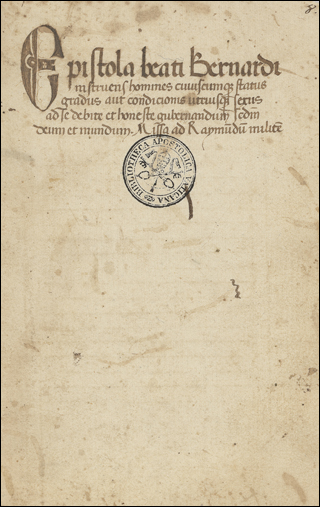 8
Epistola beati Bernardi
instruens homines cuiuscumqꝫ status
gradus aut condicionis utriusqꝫ sexus
ad se debite et honeste gubernandum scdm
deum et mundum. Missa ad Raymūdū militē
BIBLIOTHECA APOSTOLICA VATICANA